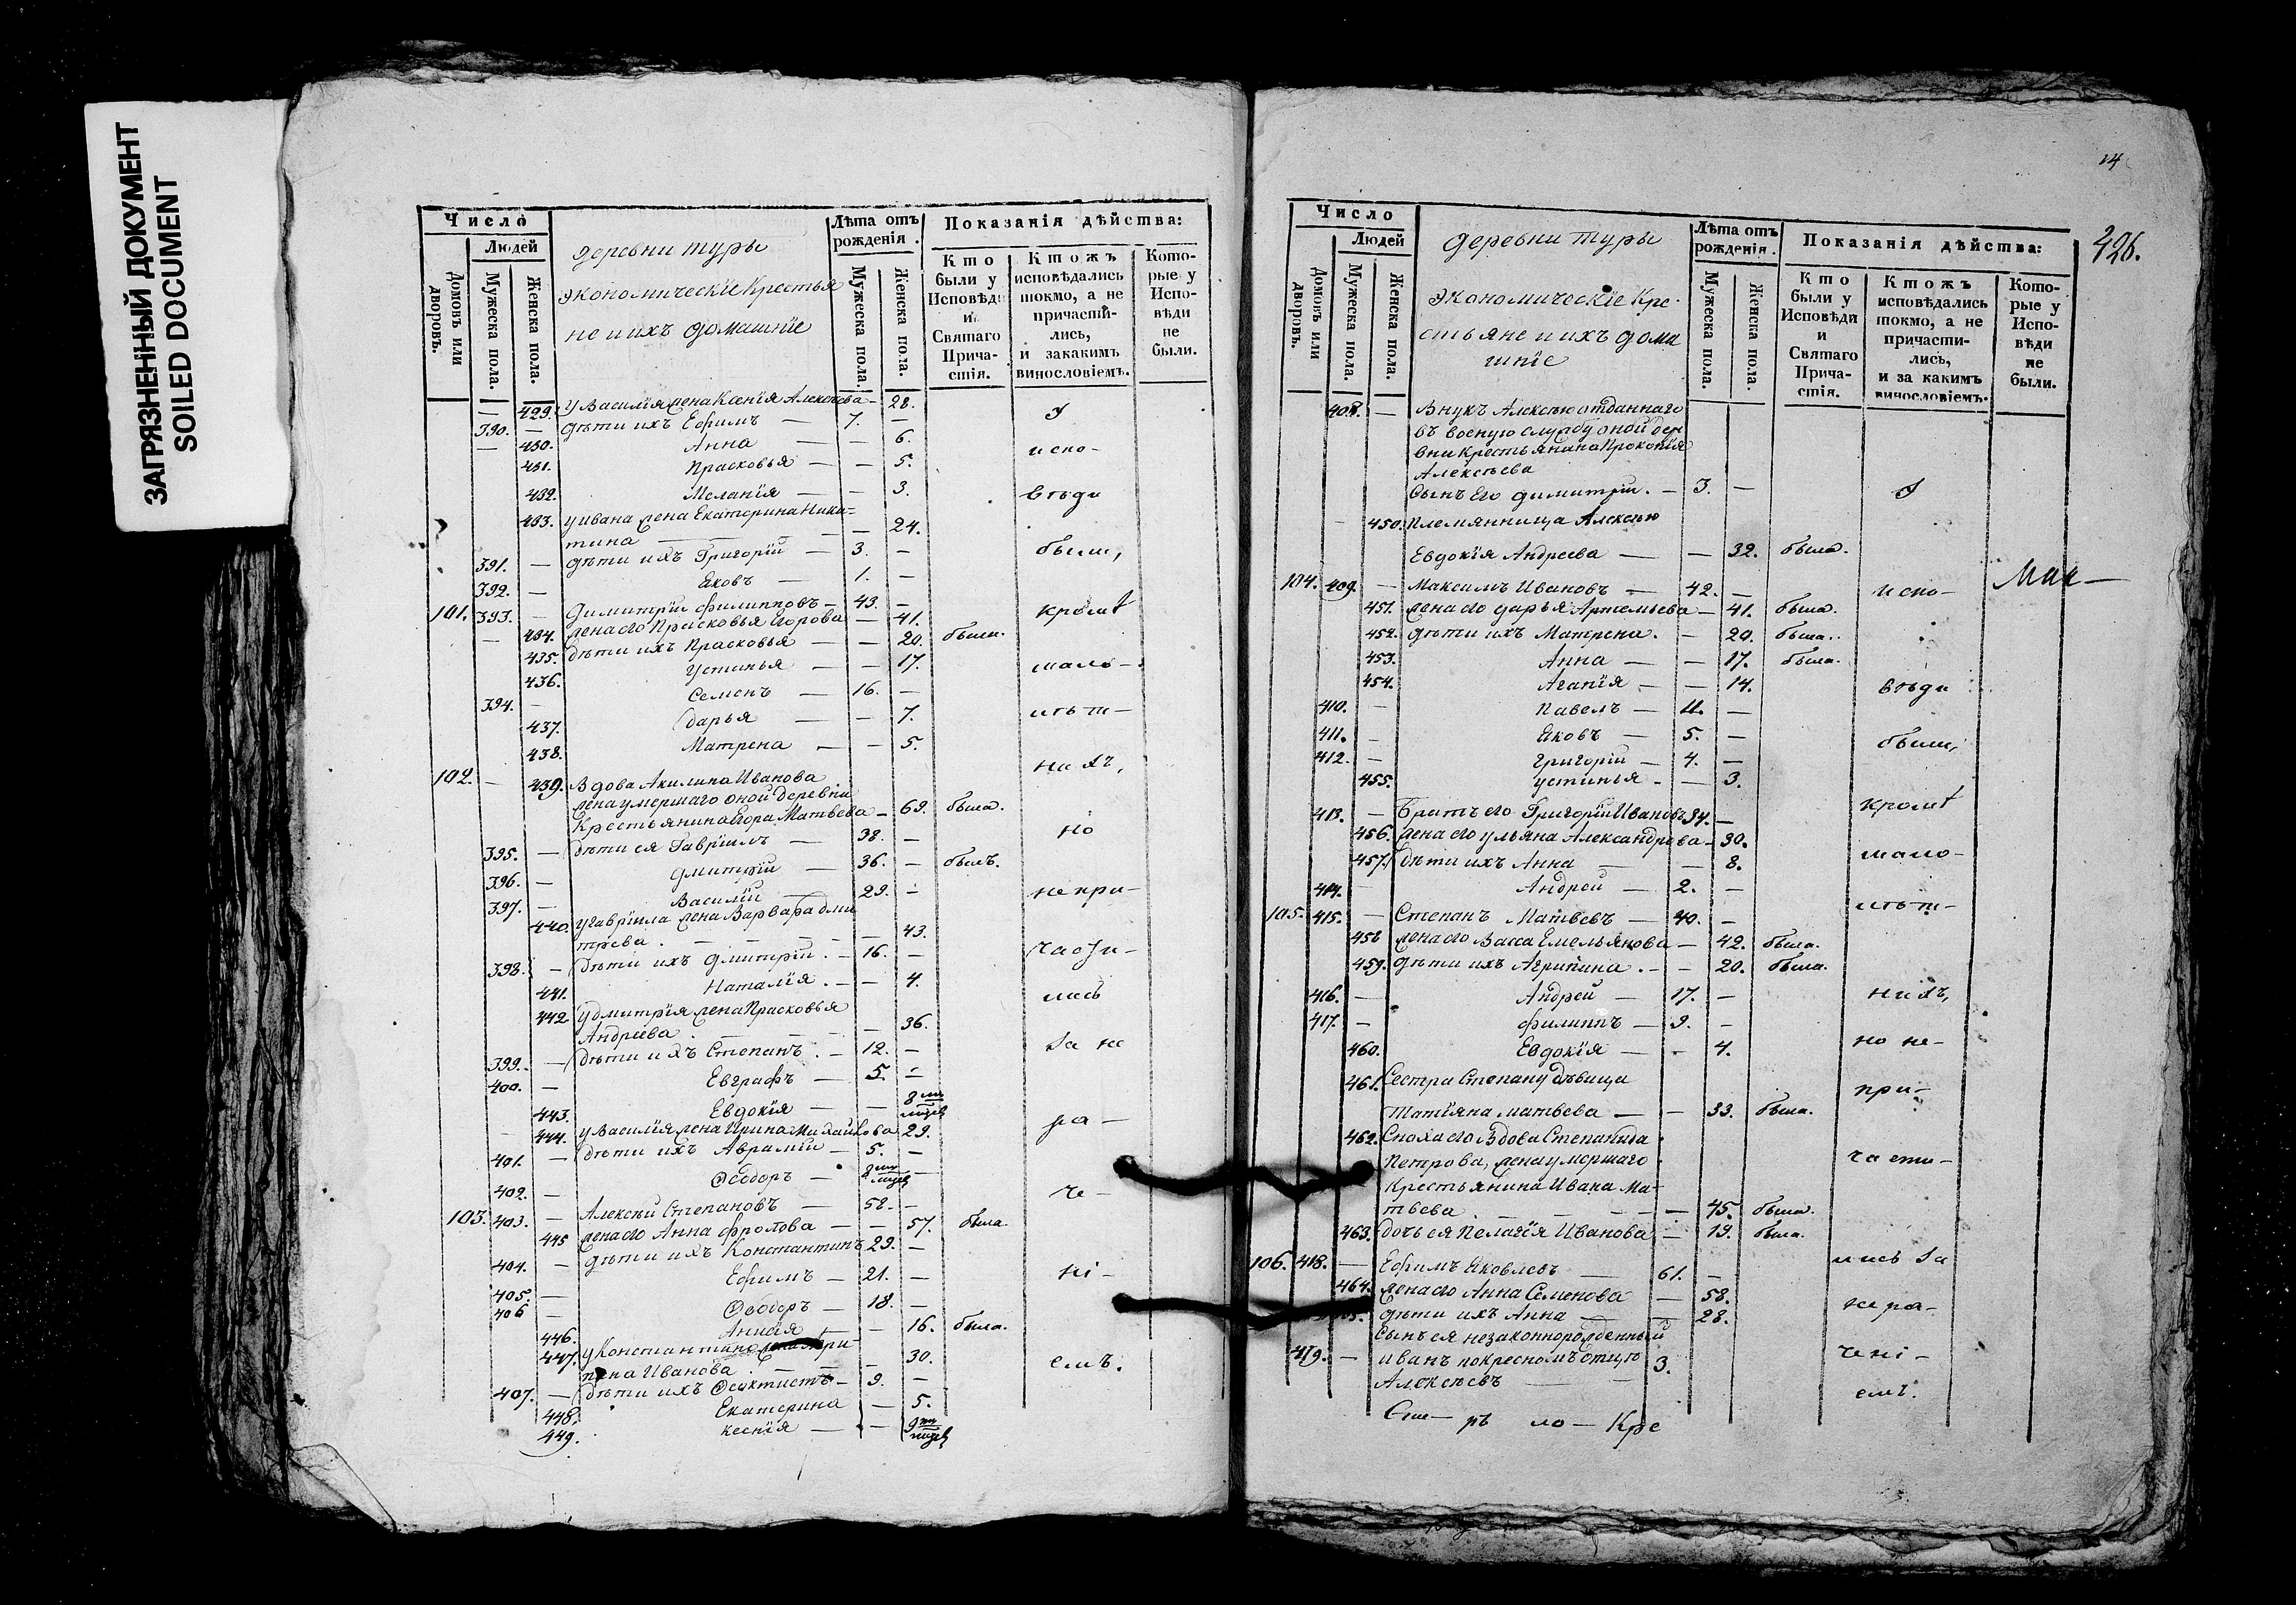 ЗАГРЯЗНЕННЫЙ ДОКУМЕНТ
SOILED DOCUMENT
Число
Людей
Домовъ или дворовъ.
Мужеска пола.
Женска пола.
деревни туры
экономическіе крестья
не и ихъ домашніе
Лѣта отъ рожденія.
Мужеска пола.
Женска пола.
Показанія дѣйства:
Кто были у Исповѣди и Святаго Прича-стія.
Ктожъ исповѣдались токмо, а не причасти-лись, и закакимъ винословіемъ.
Кото-рые у Испо-вѣди не были.
— 429. у Василія жена Ксенія Алексѣева — 28.
390. — дѣти ихъ Ефимъ — 7. —
— 430. Анна — — 6.
431. Прасковья — — 5.
432. Меланія — — 3.
433. у Ивана жена Екатерина Ники-
тина — — 24.
391. — дѣти ихъ Григорій — 3. —
392. — Яковъ — 1. —
101. 393. — Димитрій Филипповъ — 43. —
— 434. жена его Прасковья Егорова — 41.
435. дѣти ихъ Прасковья — — 20. была.
436. Устинья — — 17.
394. — Семенъ — 16. —
437. Дарья — — 7.
438. Матрена — — 5.
102. — 439. Вдова Акилина Иванова
жена умершаго оной деревни
крестьянина Егора Матвѣева — 69. была.
395. — дѣти ея Гавріилъ — 38. —
396. — Дмитрій — 36. — былъ.
397. — Василій — 29. —
440. у Гавріила жена Варвара Дми
трева. — — 43.
398. — дѣти ихъ Дмитрій. — 16. —
441. Наталія. — — 4.
442 у Дмитрія жена Прасковья
Андреева. — — 36.
399. — дѣти ихъ Степанъ. — 12. —
400. — Евграфъ — 5. —
443. Евдокія — — 8
444. у Василія жена Ирина Михайлова 29.
401. — дѣти ихъ Аврамій — 5. —
402. — Ѳеодоръ —
103. 403. — Алексѣй Степановъ — 58. —
445 жена его Анна Фролова — — 57. была.
404. — дѣти ихъ Константинъ 29. —
405. — Ефимъ — 21. —
406 — Ѳеодоръ — 18. —
446. Анисія — — 16. была.
447. у Константина жена Ири-
на Иванова. — — 30.
407. — дѣти ихъ Ѳеоктистъ — 9. —
448. Екатерина — 5.
449. Ксенія — —
У
испо-
вѣди
были,
кромѣ
мало-
лѣт-
нихъ,
но
не при-
части-
лись
за не
ра-
че-
ні-
емъ.
14
426.
Число
Людей
Домовъ или дворовъ.
Мужеска пола.
Женска пола.
деревни туры
экономическіе кре-
стьяне и ихъ дома
шніе
Лѣта отъ рожденія.
Мужеска пола.
Женска пола.
Показанія дѣйства:
Кто были у Исповѣди и Святаго Прича-стія.
Ктожъ исповѣдались токмо, а не причасти-лись, и за какимъ винословіемъ.
Кото-рые у Испо-вѣди не были.
408. — Внукъ Алексѣю отданнаго
въ военую службу оной дер
вни крестьянина Прокопія
Алексѣева
Сынъ его Димитрій. — 3. —
450. Племянница Алексѣю
Евдокія Андреева — — 32. была.
104. 409. — Максимъ Ивановъ — 42. —
451. жена его Дарья Артемьева — 41. была.
452. дѣти ихъ Матрена. — 20. была.
453. Анна — — 17. была.
454. Агапія — — 14.
410. — Павелъ — 11. —
411. — Яковъ — 5. —
412. — Григорій — 4. —
455. Устинья — — 3.
413. — Братъ его Григорій Ивановъ 34. —
456. жена его Ульяна Александрова — 30.
457. дѣти ихъ Анна — — 8.
414. — Андрей — 2. —
105. 415. — Степанъ Матвѣевъ — 40. —
458 жена его Васса Емельянова — 42. была.
459. дѣти ихъ Агрипина. — — 20. была.
416. — Андрей — 17. —
417. — Филиппъ — 9. —
460. Евдокія — — 4.
461. Сестра Степану дѣвица
Татіяна Матвѣева — — 33. была.
462. Сноха его вдова Степанида
Петрова, жена умершаго
крестьянина Ивана Ма-
твѣева — — 45. была.
463. дочь ея Пелагія Иванова — 19. была.
106. 418. — Ефимъ Яковлевъ — 61. —
464. жена его Анна Семенова — 58.
дѣти ихъ Анна — — 28.
Сынъ ея незаконнорожденный
419. — Иванъ по кресномъ отцѣ 3.
Алексѣевъ —
У
испо-
вѣди
были,
кромѣ
мало-
лѣт-
нихъ,
но не-
при-
части-
лись за
нера-
чені-
емъ.